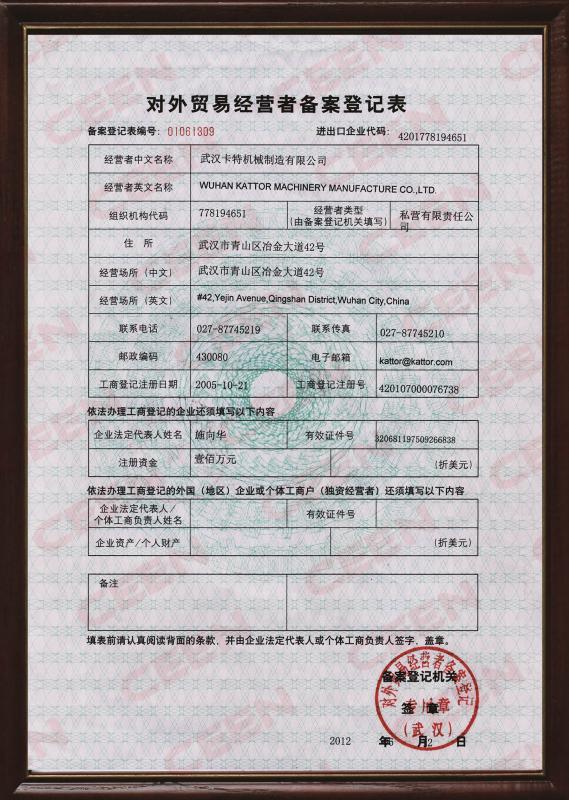 对外贸易经营者备案登记表
备案登记表编号: 01061309 进出口企业代码: 4201778194651
经营者中文名称 武汉卡特机械制造有限公司
经营者英文名称 WUHAN KATTOR MACHINERY MANUFACTURE CO.,LTD.
组织机构代码 778194651 经营者类型 (由备案登记机关填写) 私营有限责任公司
住 所 武汉市青山区冶金大道42号
经营场所（中文） 武汉市青山区冶金大道42号
经营场所（英文） #42,Yejin Avenue,Qingshan District,Wuhan City,China
联系电话 027-87745219 联系传真 027-87745210
邮政编码 430080 电子邮箱 kattor@kattor.com
工商登记注册日期 2005-10-21 工商登记注册号 420107000076738
依法办理工商登记的企业还须填写以下内容
企业法定代表人姓名 施向华 有效证件号 320681197509266838
注册资金 壹佰万元 (折美元)
依法办理工商登记的外国（地区）企业或个体工商户（独资经营者）还须填写以下内容
企业法定代表人/ 有效证件号
个体工商负责人姓名
企业资产/个人财产 (折美元)
备注
填表前请认真阅读背面的条款，并由企业法定代表人或个体工商负责人签字、盖章。
对外贸易经营者备案登记
备案登记机关
专用章
签 章
（武汉）
2012 年 月 日
CEEN